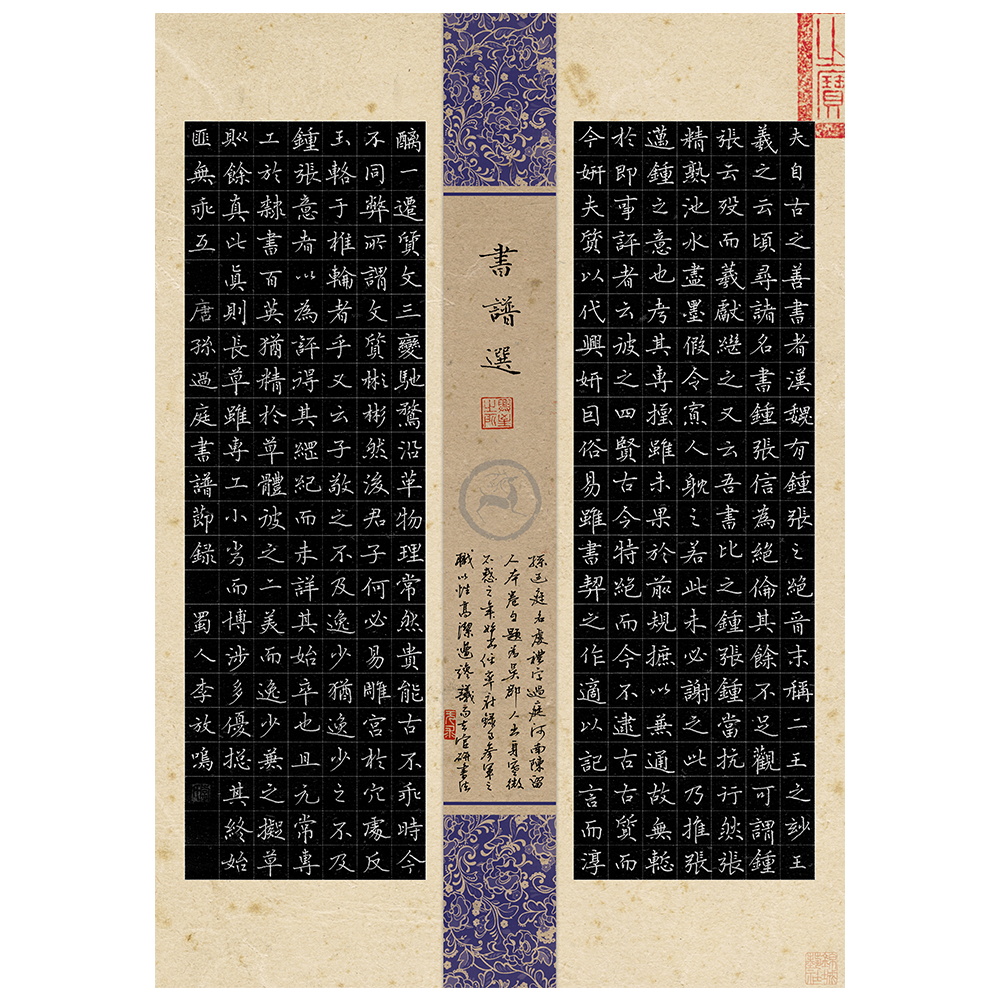 夫自古之善書者漢魏有鍾張之絕晉末稱二王之妙王
羲之云頃尋諸名書鍾張信為絕倫其餘不足觀可謂鍾
張云歿而羲獻繼之又云吾書比之鍾張鍾當抗行然張
精熟池水盡墨假令寡人耽之若此未必謝之此乃推張
邁鍾之意也考其專擅雖未果於前規摭以兼通故無慙
於即事評者云彼之四賢古今特絕而今不逮古古質而
今妍夫質以代興妍因俗易雖書契之作適以記言而淳
之寶
書譜選
孫過庭名虔禮字過庭河南陳留
人本卷自題為吳郡人出身寒微
不惑之年始出任率府錄事參軍之
職以性高潔遭讒議而去官研書法
醨一遷質文三變馳騖沿革物理常然貴能古不乖時今
不同弊所謂文質彬彬然後君子何必易雕宮於穴處反
玉輅于椎輪者乎又云子敬之不及逸少猶逸少之不及
鍾張意者以為評得其綱紀而未詳其始卒也且元常專
工於隸書百英猶精於草體彼之二美而逸少兼之擬草
則餘真比真則長草雖專工小劣而博涉多優摠其終始
匪無乖互 唐孫過庭書譜節錄 蜀人李放鳴